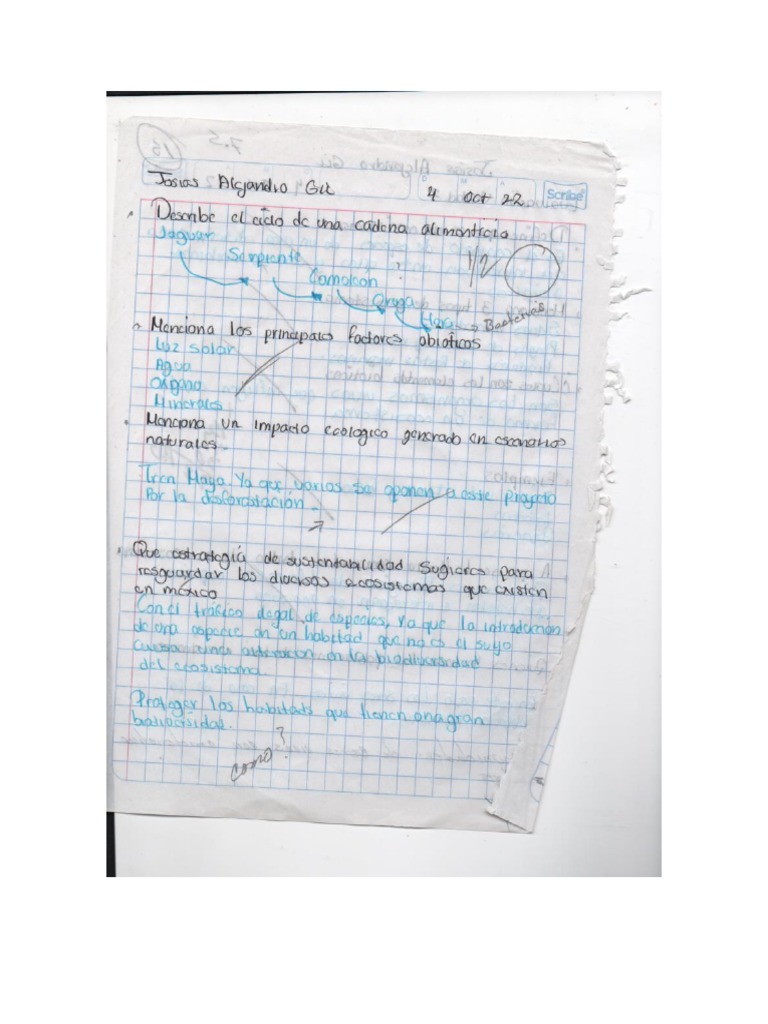 7.5
15
Josias Alejandro Gil
4 Oct 22
Scribe
Describe el ciclo de una cadena alimenticia
Jaguar
Serpiente
Camaleón
?
Oruga
Hoja
Bacterias
1/2
Menciona los principales factores abioticos
Luz solar
Agua
Oxígeno
Minerales
Menciona un impacto ecologico generado en escenarios
naturales
Tren Maya. Ya que varios se oponen a este proyecto
Por la desforestación.
Que estrategía de sustentabilidad sugieres para
resguardar los diversos ecosistemas que existen
en méxico
Con el tráfico ilegal de especies, Ya que la introducción
de una especie en un habitad que no es el suyo
causa una alteración en la biodiversidad
del ecosistema.
Proteger los habitads que tienen una gran
biodiversidad.
como?